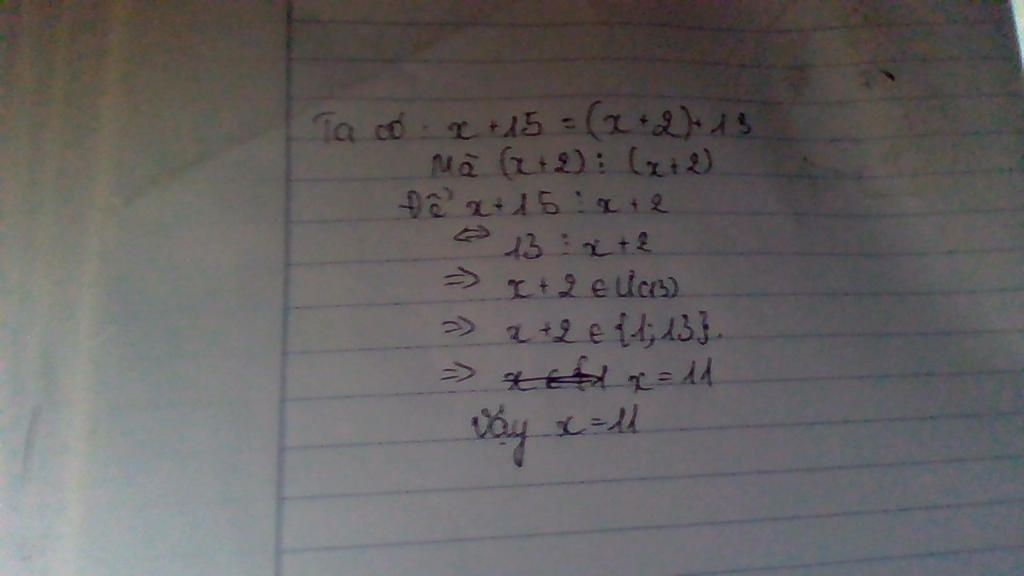 Ta có: x + 15 = (x + 2) + 13
Mà (x + 2) ⋮ (x + 2)
Để x + 15 ⋮ x + 2
⇔ 13 ⋮ x + 2
⇒ x + 2 ∈ Ư(13)
⇒ x + 2 ∈ {1; 13}.
⇒ x = 11
Vậy x = 11